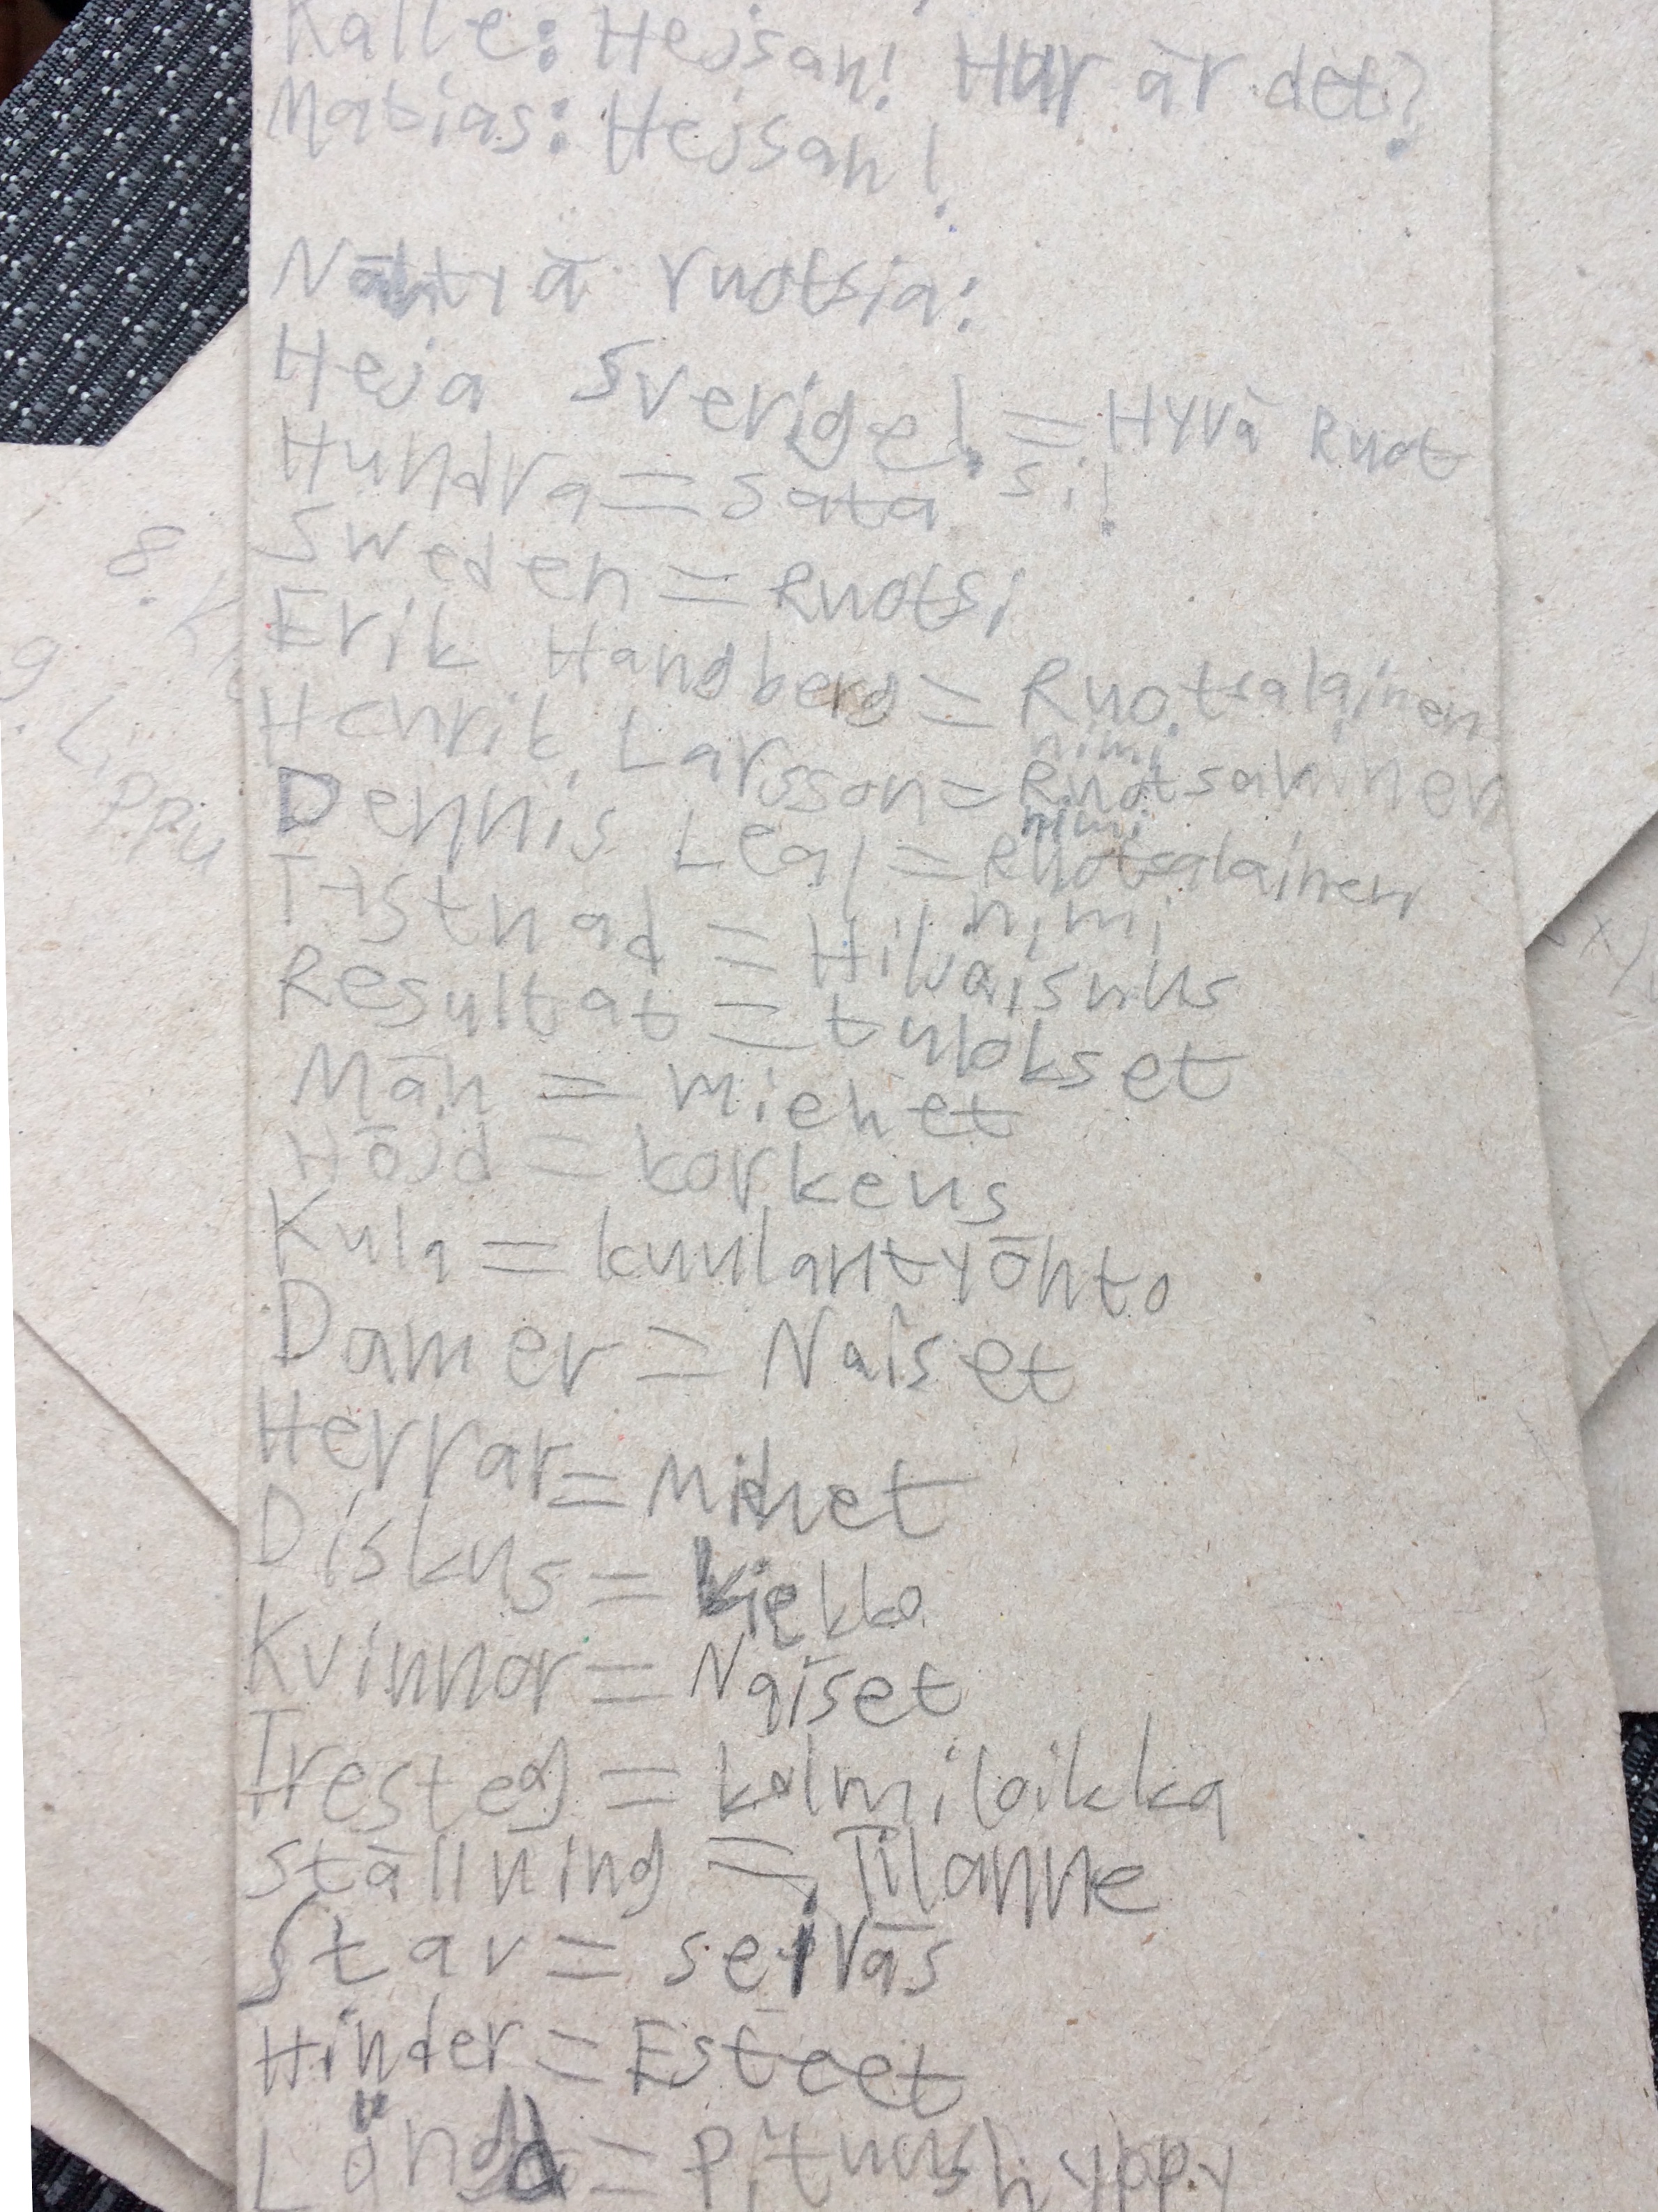 Kalle: Hejsan! Hur är det?
Matias: Hejsan!
Nähtyä ruotsia:
Heja Sverige! = Hyvä Ruot
si!
Hundra = sata
Sweden = Ruotsi
Erik Handberg = Ruotsalainen
nimi
Henrik Larsson = Ruotsaninen
nimi
Dennis Leal = Ruotsalainen
nimi
Tistnad = Hiljaisuus
Resultat = tulokset
Män = miehet
Höjd = korkeus
Kula = kuulantyöntö
Damer = Naiset
Herrar = Miehet
Diskus = kiekko
Kvinnor = Naiset
Tresteg = kolmiloikka
Ställning = Tilanne
Stav = seiväs
Hinder = Esteet
Längd = Pituushyppy
8.
9. Lippu